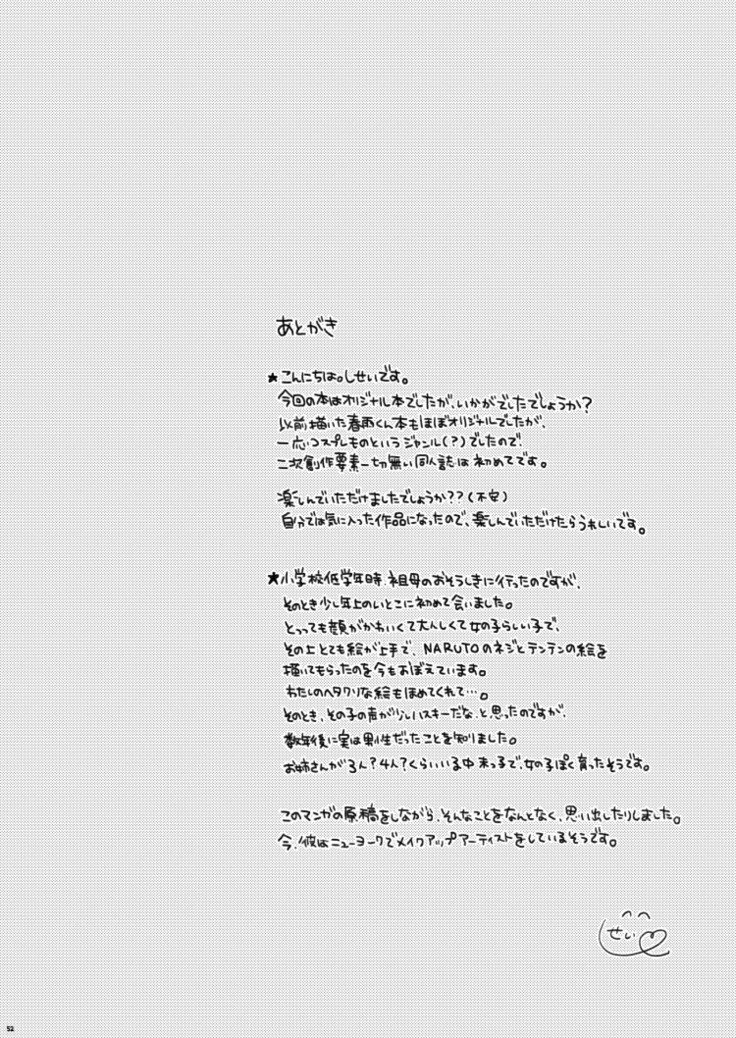 あとがき
★こんにちは。しせいです。
今回の本はオリジナル本でしたが、いかがでしたでしょうか？
以前描いた春雨くん本もほぼオリジナルでしたが、
一応コスプレものというジャンル(？)でしたので、
二次創作要素一切無い同人誌は初めてです。
楽しんでいただけましたでしょうか？？(不安)
自分では気に入った作品になったので、楽しんでいただけたらうれしいです。
★小学校低学年時、祖母のおそうしきに行ったのですが、
そのとき少し年上のいとこに初めて会いました。
とっっても顔がかわいくて大人しくて女の子らしい子で、
その上とても絵が上手で、NARUTOのネジとテンテンの絵を
描いてもらったのを今もおぼえています。
わたしのヘタクソな絵もほめてくれて…。
そのとき、その子の声が少しハスキーだな、と思ったのですが、
数年後に実は男性だったことを知りました。
お姉さんが3人？4人？くらいいる中末っ子で、女の子ぽく育ったそうです。
このマンガの原稿をしながら、そんなことをなんとなく、思い出したりしました。
今、彼はニューヨークでメイクアップアーティストをしているそうです。
せい
52